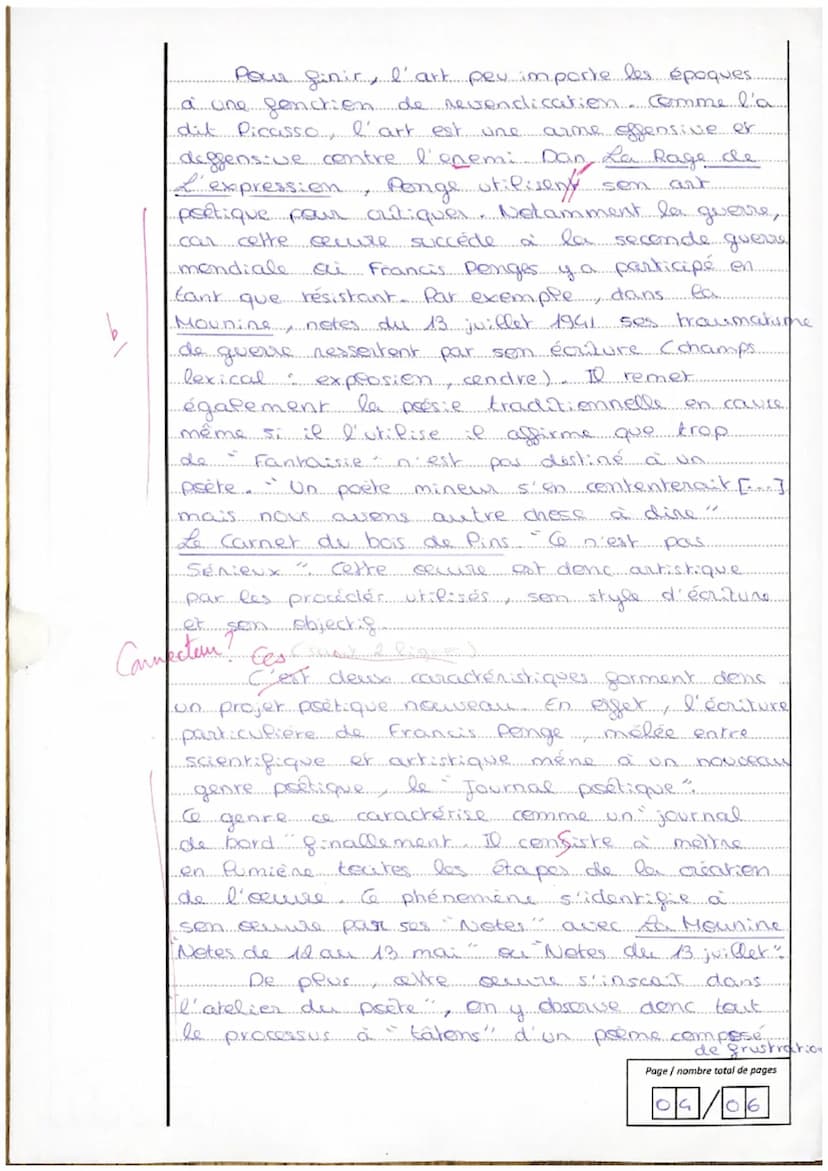 Pour finir, l'art peu importe les époques
a une fonction de revendication. Comme l'a
dit Picasso, l'art est une arme offensive et
deffensive contre l'enemi. Dan La Rage de
L'expression, Ponge utilisent son art
poétique pour critiquer. Notamment la guerre,
car cette œuvre succéde à la seconde guerre
mondiale où Francis Ponges y a participé en
tant que résistant. Par exemple, dans la
Mounine, notes du 13 juillet 1941 ses traumatisme
de guerre ressortent par son écriture (champs
lexical : explosion, cendre). Il remet
également la poésie traditionnelle en cause
même si il l'utilise il affirme que trop
de "Fantaisie" n'est pas déstiné à un
poète. "Un poète mineur s'en contenterait [...]
mais nous avons autre chose à dire"
Le Carnet du bois de Pins. "Ce n'est pas
Sérieux". Cette œuvre est donc artistique
par les procédés utilisés, son style d'écriture
et son objectif.
Connecteur? Ces (saut 2 lignes)
C'est deux caractéristiques forment donc
un projet poétique nouveau. En effet, l'écriture
particulière de Francis Ponge, mêlée entre
scientifique et artistique méne à un nouveau
genre poétique, le "Journal poétique".
Ce genre ce caractérise comme un "journal
de bord" finallement. Il consiste à mettre
en lumière toutes les étapes de la création
de l'œuvre. Ce phénomène s'identifie à
son œuvre par ses "Notes" avec La Mounine
"Notes de 12 au 13 mai" ou "Notes du 13 juillet".
De plus, cette œuvre s'inscrit dans
"l'atelier du poète", on y observe donc tout
le processus à "tâtons" d'un poème composé
de frustration
Page / nombre total de pages
04/06